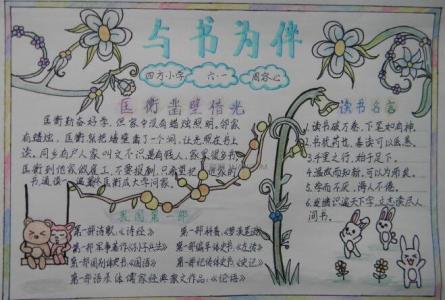 与书为伴
四方小学 六·一 周容心
匡衡凿壁借光
匡衡勤奋好学,但家中没有蜡烛照明。邻家
有蜡烛,匡衡就把墙壁凿了一个洞,让光照在书上
读。同乡有户人家叫文不识,是有钱人,家里很多书,
匡衡到他家做雇工,不要报酬,只希望把他家的
书通读一遍。匡衡成大学问家。
读书名言
1.读书破万卷,下笔如有神。
2.书犹药也,善读可以医愚。
3.千里之行,始于足下。
4.温故而知新,可以为师矣。
5.学而不厌,诲人不倦。
6.发愤识遍天下字,立志读尽人
间书。
我国第一部
第一部诗歌:《诗经》
第一部军事著作《孙子兵法》
第一部国别体史书《国语》
第一部语录体儒家经典散文作品:《论语》
第一部辞书:《梦溪笔谈》
第一部编年体史书《左传》
第一部纪传体史书《史记》